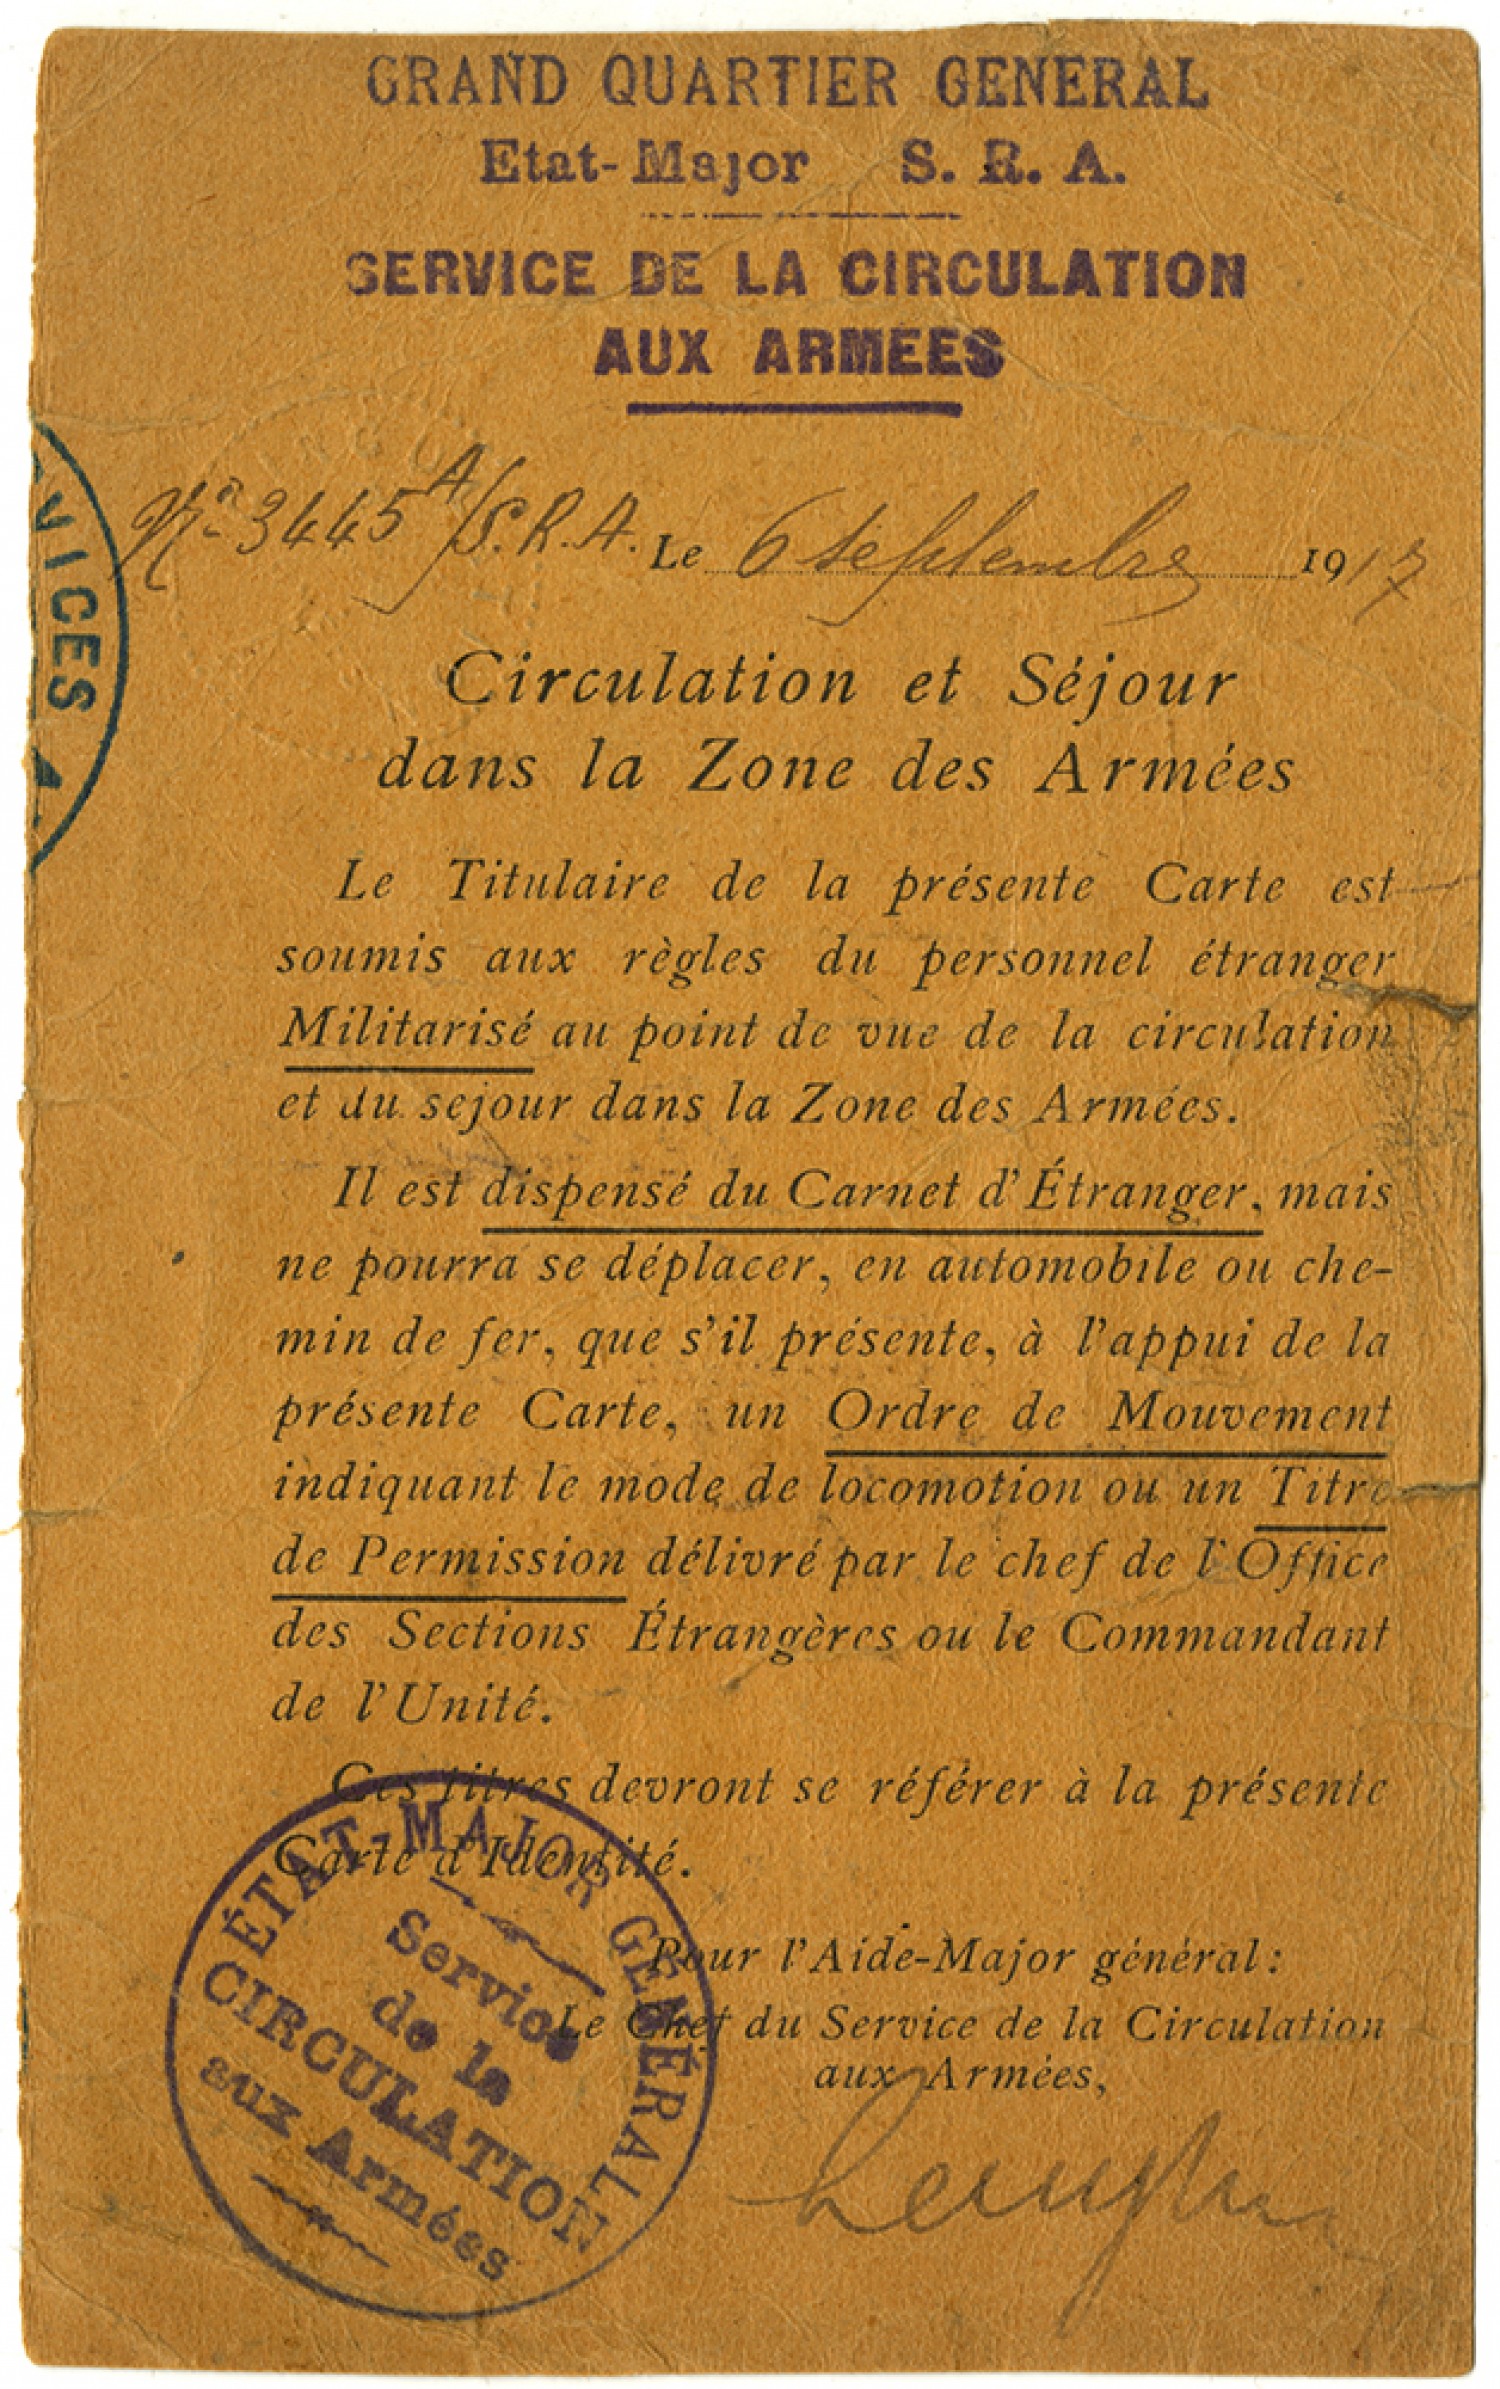 GRAND QUARTIER GENERAL
Etat-Major S. R. A.
SERVICE DE LA CIRCULATION
AUX ARMEES
VICES
No 3445 A/S.R.A. Le 6 septembre 1917
Circulation et Séjour
dans la Zone des Armées
Le Titulaire de la présente Carte est
soumis aux règles du personnel étranger
Militarisé au point de vue de la circulation
et du sejour dans la Zone des Armées.
Il est dispensé du Carnet d'Étranger, mais
ne pourra se déplacer, en automobile ou che-
min de fer, que s'il présente, à l'appui de la
présente Carte, un Ordre de Mouvement
indiquant le mode de locomotion ou un Titre
de Permission délivré par le chef de l'Office
des Sections Étrangères ou le Commandant
de l'Unité.
Ces titres devront se référer à la présente
Carte d'Identité.
Pour l'Aide-Major général:
Le Chef du Service de la Circulation
aux Armées,
ÉTAT-MAJOR GÉNÉRAL
Service
de la
CIRCULATION
aux Armées